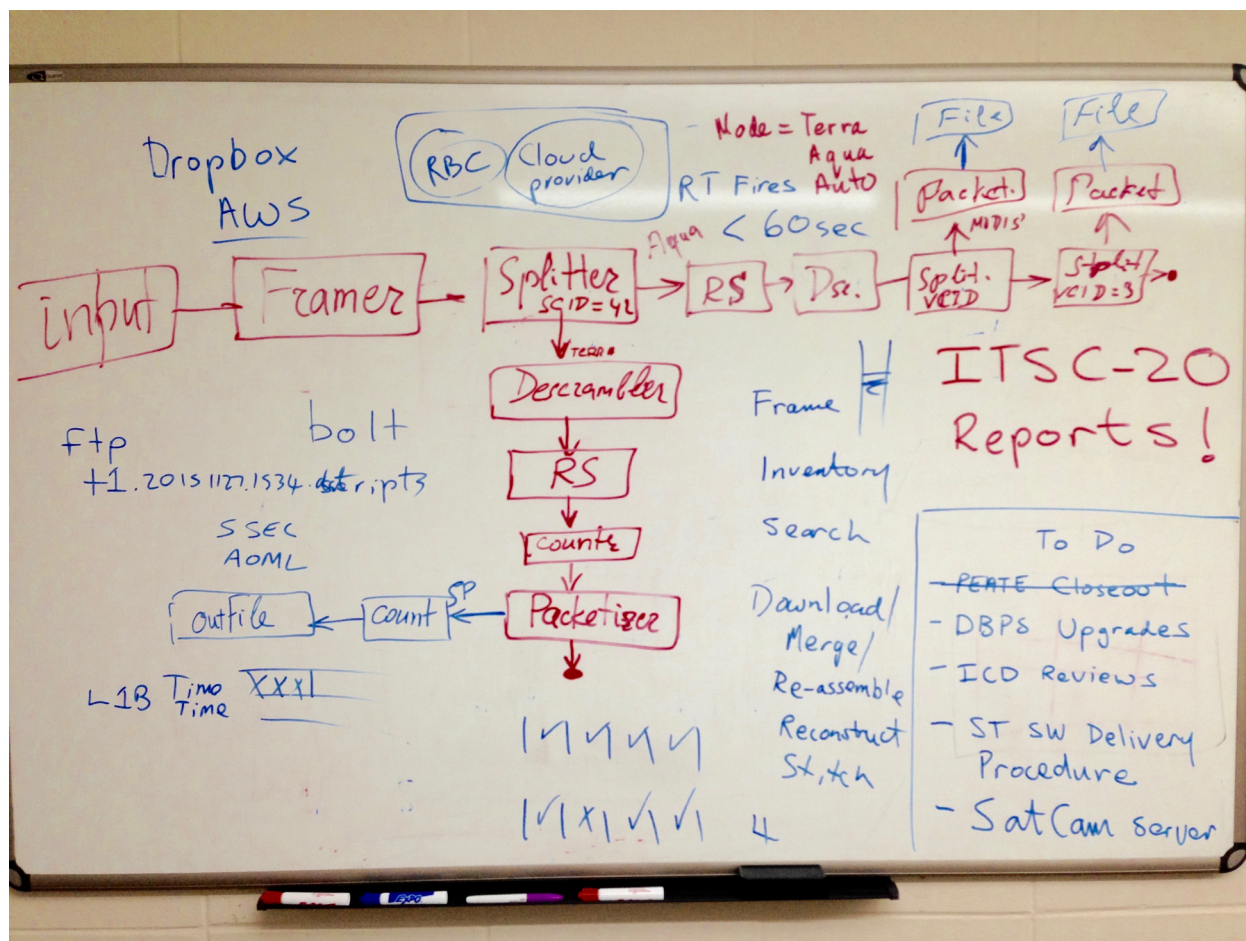 Dropbox
AWS
RBC
Cloud
provider
Mode = Terra
Aqua
Auto
RT Fires
< 60sec
File
File
Packet.
Packet
MODIS
input
Framer
Splitter
SCID=42
Aqua
RS
Dsc.
Split.
VCID
Split
VCID=3
TERRA
Descrambler
RS
Packetizer
SP
count
outfile
ftp
bolt
SSEC
AOML
L1B Time
Time
XXX
Frame
Inventory
Search
Download/
Merge/
Re-assemble
Reconstruct
Stitch
4
ITSC-20
Reports!
To Do
- PEATE Closeout
- DBPS Upgrades
- ICD Reviews
- ST SW Delivery
Procedure
- SatCam server
EXPO